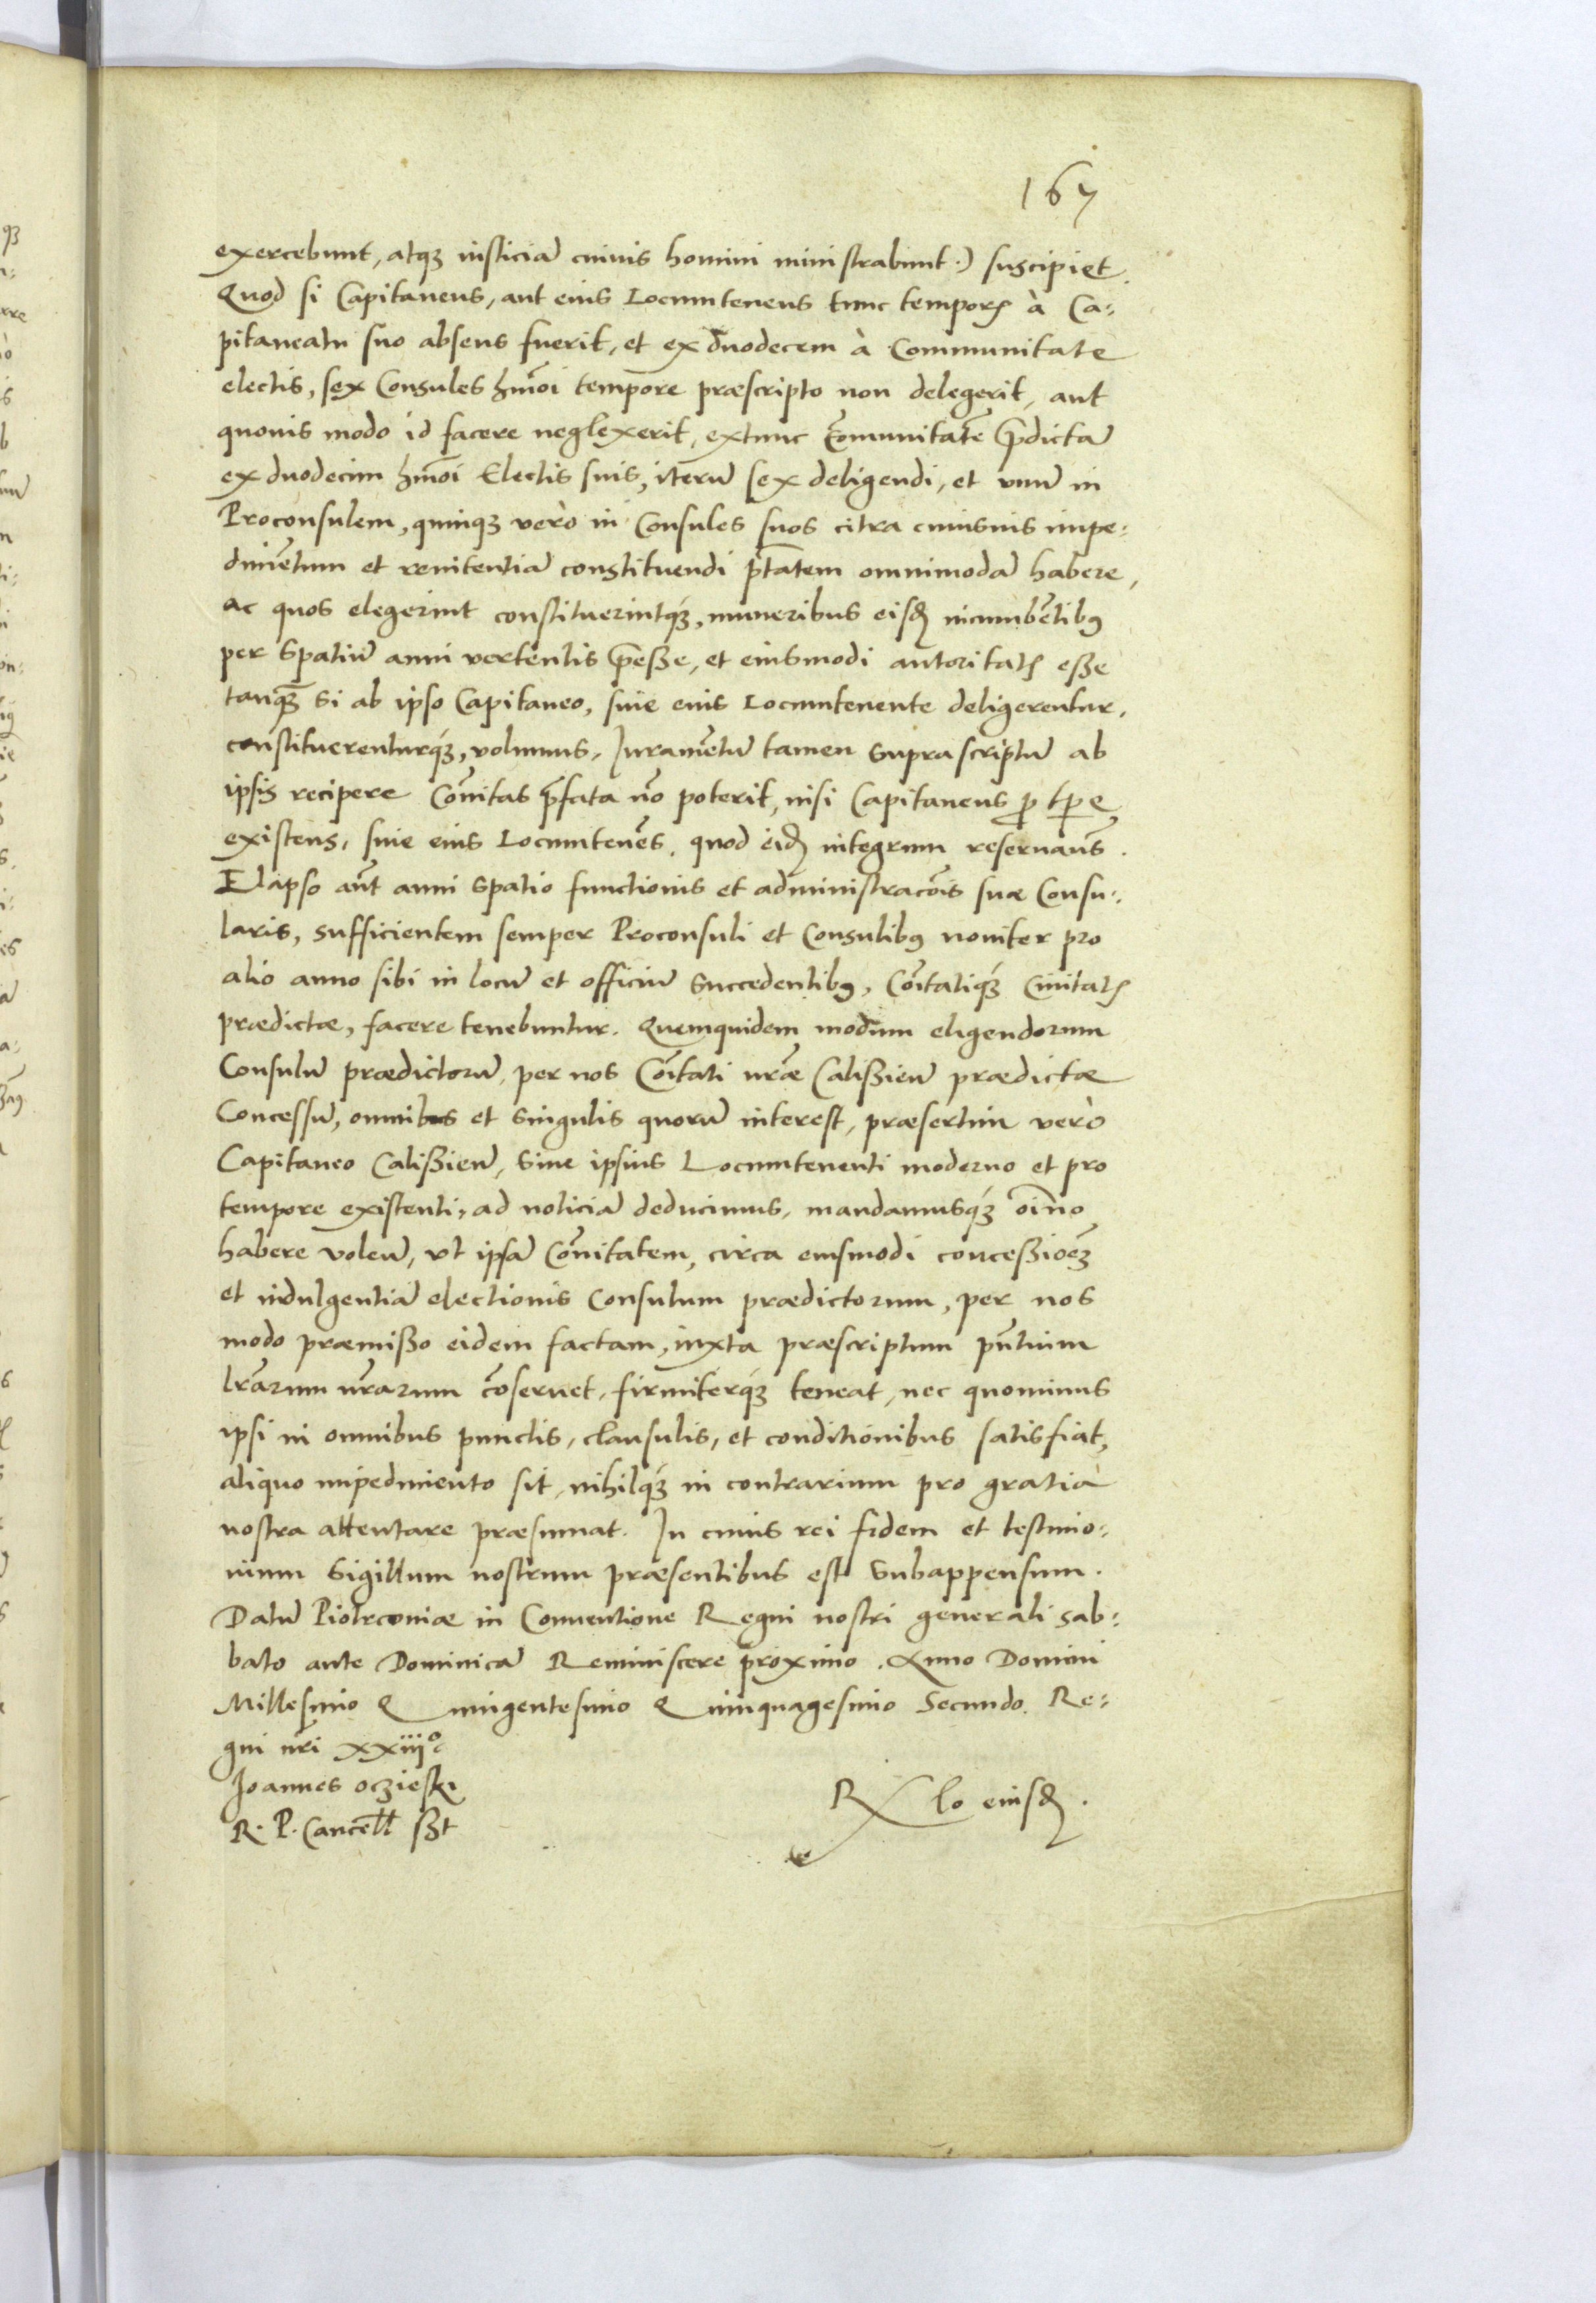 167
exercebunt, atqȝ iusticiã cuiuis homini ministrabunt.) suscipiet.
Quod si Capitaneus, aut eius Locumtenens tunc temporꝭ à Ca=
pitaneatu suo absens fuerit, et ex duodecem à Communitate
electis, sex Consules hmõi tempore præscripto non delegerit, aut
quouis modo id facere neglexerit, extunc Cõmunitatẽ p̃dictã
ex duodecim hmõi Electis suis, iterũ sex deligendi, et vnũ in
Proconsulem, quinqȝ verò in Consules suos citra cuiusuis impe=
dimẽtum et renitentiã constituendi ptãtem omnimodã habere,
ac quos elegerint constituerintqȝ́, muneribus eisdꝫ incumbẽtibꝰ
per Spatiũ anni vertentis p̃eße, et eiusmodi autoritatꝭ eße
tanqȝ̃ si ab ipso Capitaneo, siue eius Locumtenente deligerentur,
constituerenturqȝ́, volumus. Iuramẽtũ tamen suprascriptũ ab
ipsis recipere Cõmitas p̃fata nõ poterit, nisi Capitaneus ꝓ tp̃e
existens, siue eius Locumtenẽs, quod eidꝫ integrum reseruam̃s.
Elapso aũt anni spatio functionis et administracõis suæ Consu=
laris, sufficientem semper Proconsuli et Consulibꝰ nouiter pro
alio anno sibi in locũ et officiũ succedentibꝰ, Cõitatiqȝ́ Ciuitatꝭ
prædictæ, facere tenebuntur. Quemquidem modum eligendorum
Consulũ prædictorũ, per nos Cõitati nr̃æ Calißieñ prædictæ
Concessũ, omnibus et singulis quorũ interest, præsertim verò
Capitaneo Calißieñ, siue ipsius Locumtenenti moderno et pro
tempore existenti, ad noticiã deducimus, mandamusqȝ́ oĩno
habere voleñ, vt ipsã Cõmitatem, circa eiusmodi conceßioẽȝ
et indulgentiã electionis Consulum prædictorum, per nos
modo præmißo eidem factam, iuxta præscriptum pñtium
lr̃arum nr̃arum cõseruet, firmiterqȝ́ teneat, nec quominus
ipsi in omnibus punctis, clausulis, et conditionibus satisfiat,
aliquo impedimento sit, nihilqȝ́ in contrarium pro gratia
nostra attentare præsumat. In cuius rei fidem et testimo=
nium Sigillum nostrum præsentibus est Subappensum.
Datũ Piotrconiæ in Conuentione Regni nostri generali sab=
bato ante Dominicã Reminiscere proximo. Anno Domini
Millesimo Quingentesimo Quinquagesimo Secundo. Re=
gni nr̃i xxiijº
Joannes oczieski
R. P. Cancell̃ ßt
Rlo eiusdꝫ.